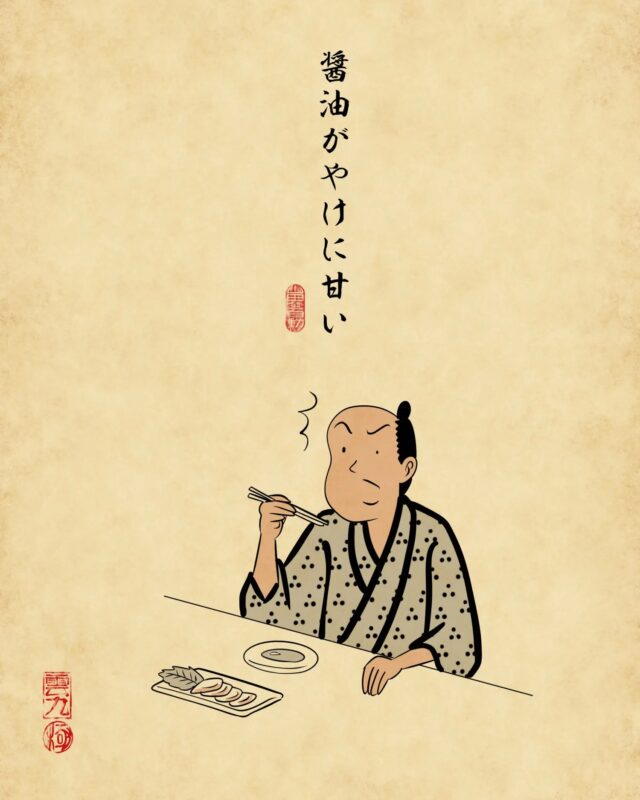 醤油がやけに甘い